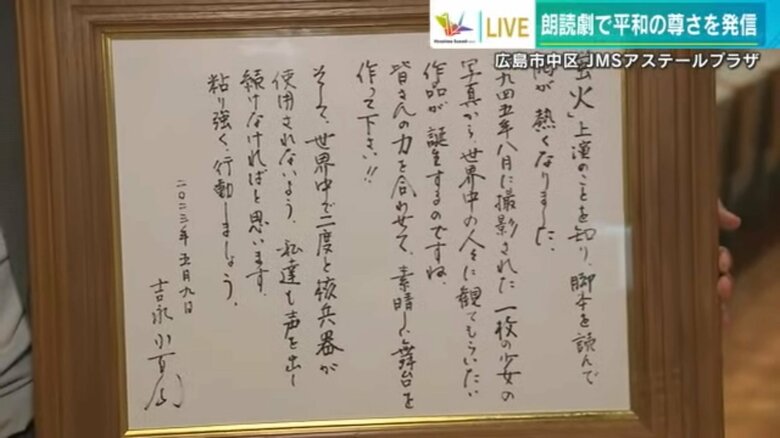 LIVE 朗読劇で平和の尊さを発信
広島市中区 JMSアステールプラザ
火」上演のことを知り、脚本を読んで
が熱くなりました。
九四五年八月に撮影された一枚の少女の
写真から世界中の人々に観てもらいたい
作品が誕生するのですね。
皆さんの力を合わせて、素晴しい舞台を
作って下さい!!
そして、世界中で二度と核兵器が
使用されないよう、私達も声を出し
続けなければと思います。
粘り強く、行動しましょう。
二〇二三年五月九日
吉永小百合